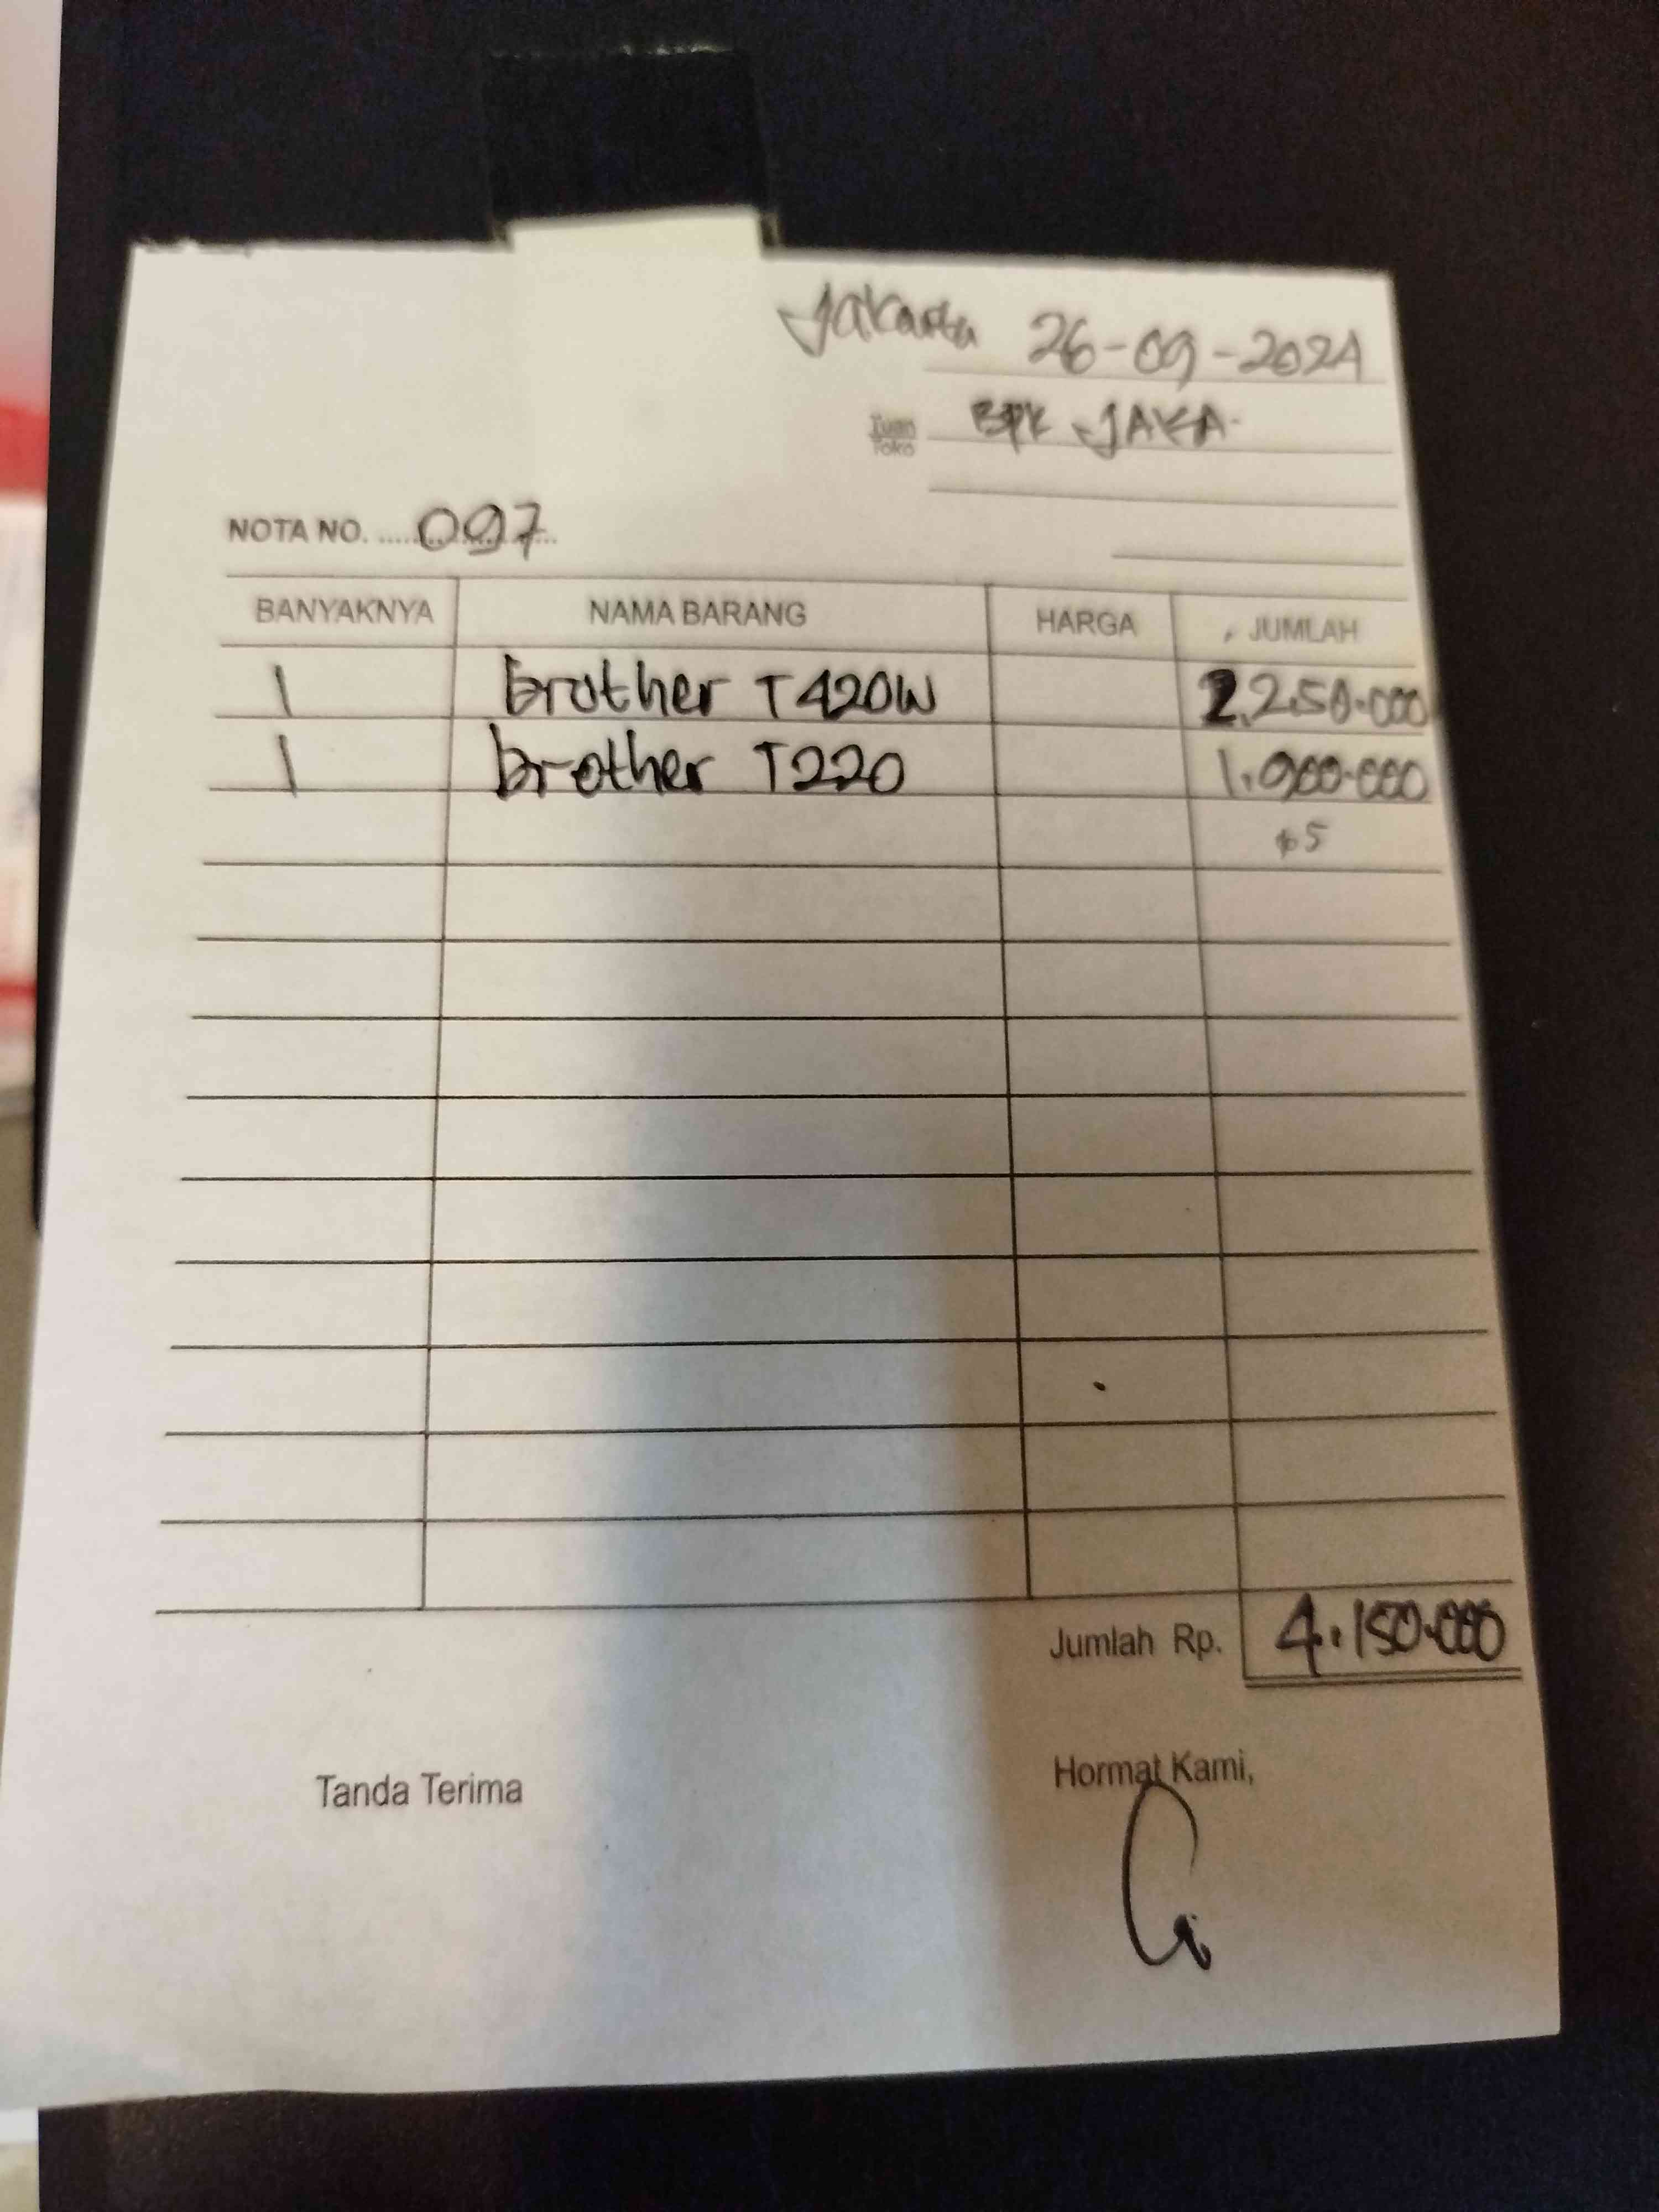 Jakarta 26-09-2024
Tuan
Toko
BPK JAKA
NOTA NO. 097
BANYAKNYA NAMA BARANG HARGA JUMLAH
1 brother T420W 2.250.000
1 brother T220 1.900.000
Jumlah Rp. 4.150.000
Tanda Terima Hormat Kami,